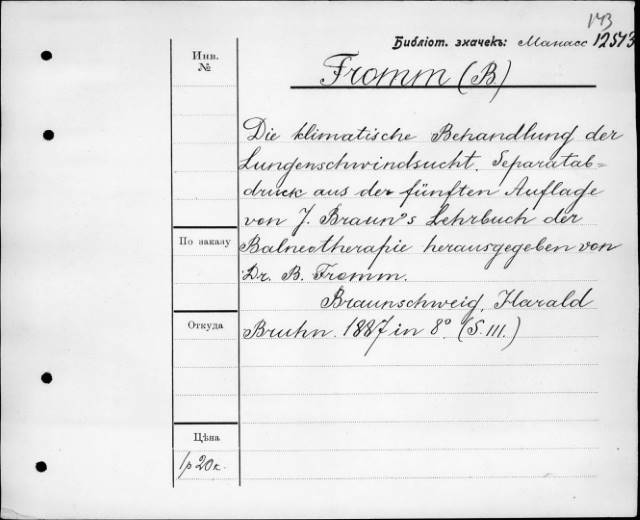 143
Библіот. значекъ: Манасс 12573
Инв.
№
Fromm (B)
Die klimatische Behandlung der
Lungenschwindsucht. Separatab=
druck aus der fünften Auflage
von J. Braun's Lehrbuch der
По заказу
Balneotherapie herausgegeben von
Dr. B. Fromm.
Braunschweig, Harald
Откуда
Bruhn. 1887 in 8° (S. 111.)
Цѣна
1р 20к.